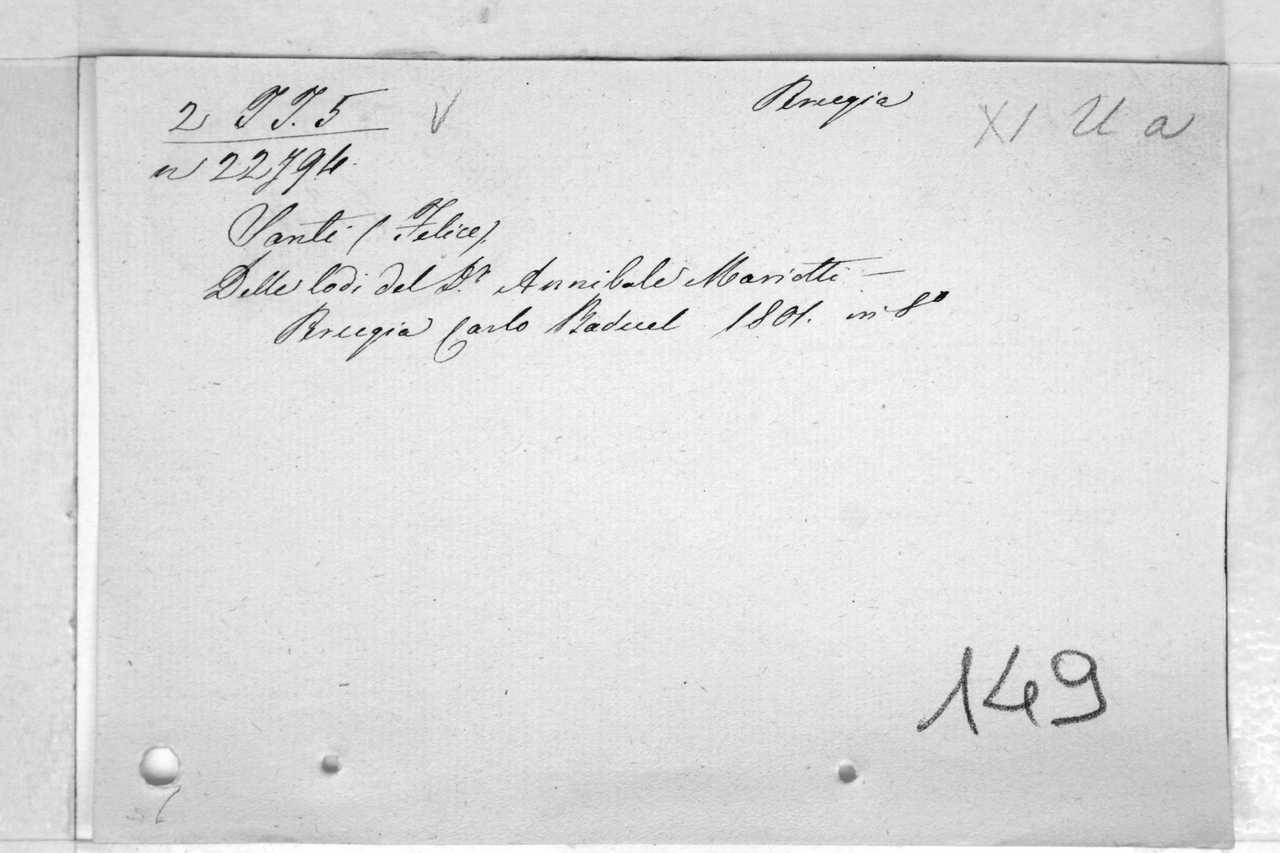 2 TT. 5 Perugia XI U a
n 22794.
Santi (Felice).
Delle lodi del D.r Annibale Mariotti —
Perugia Carlo Baduel 1801. in 8°
149